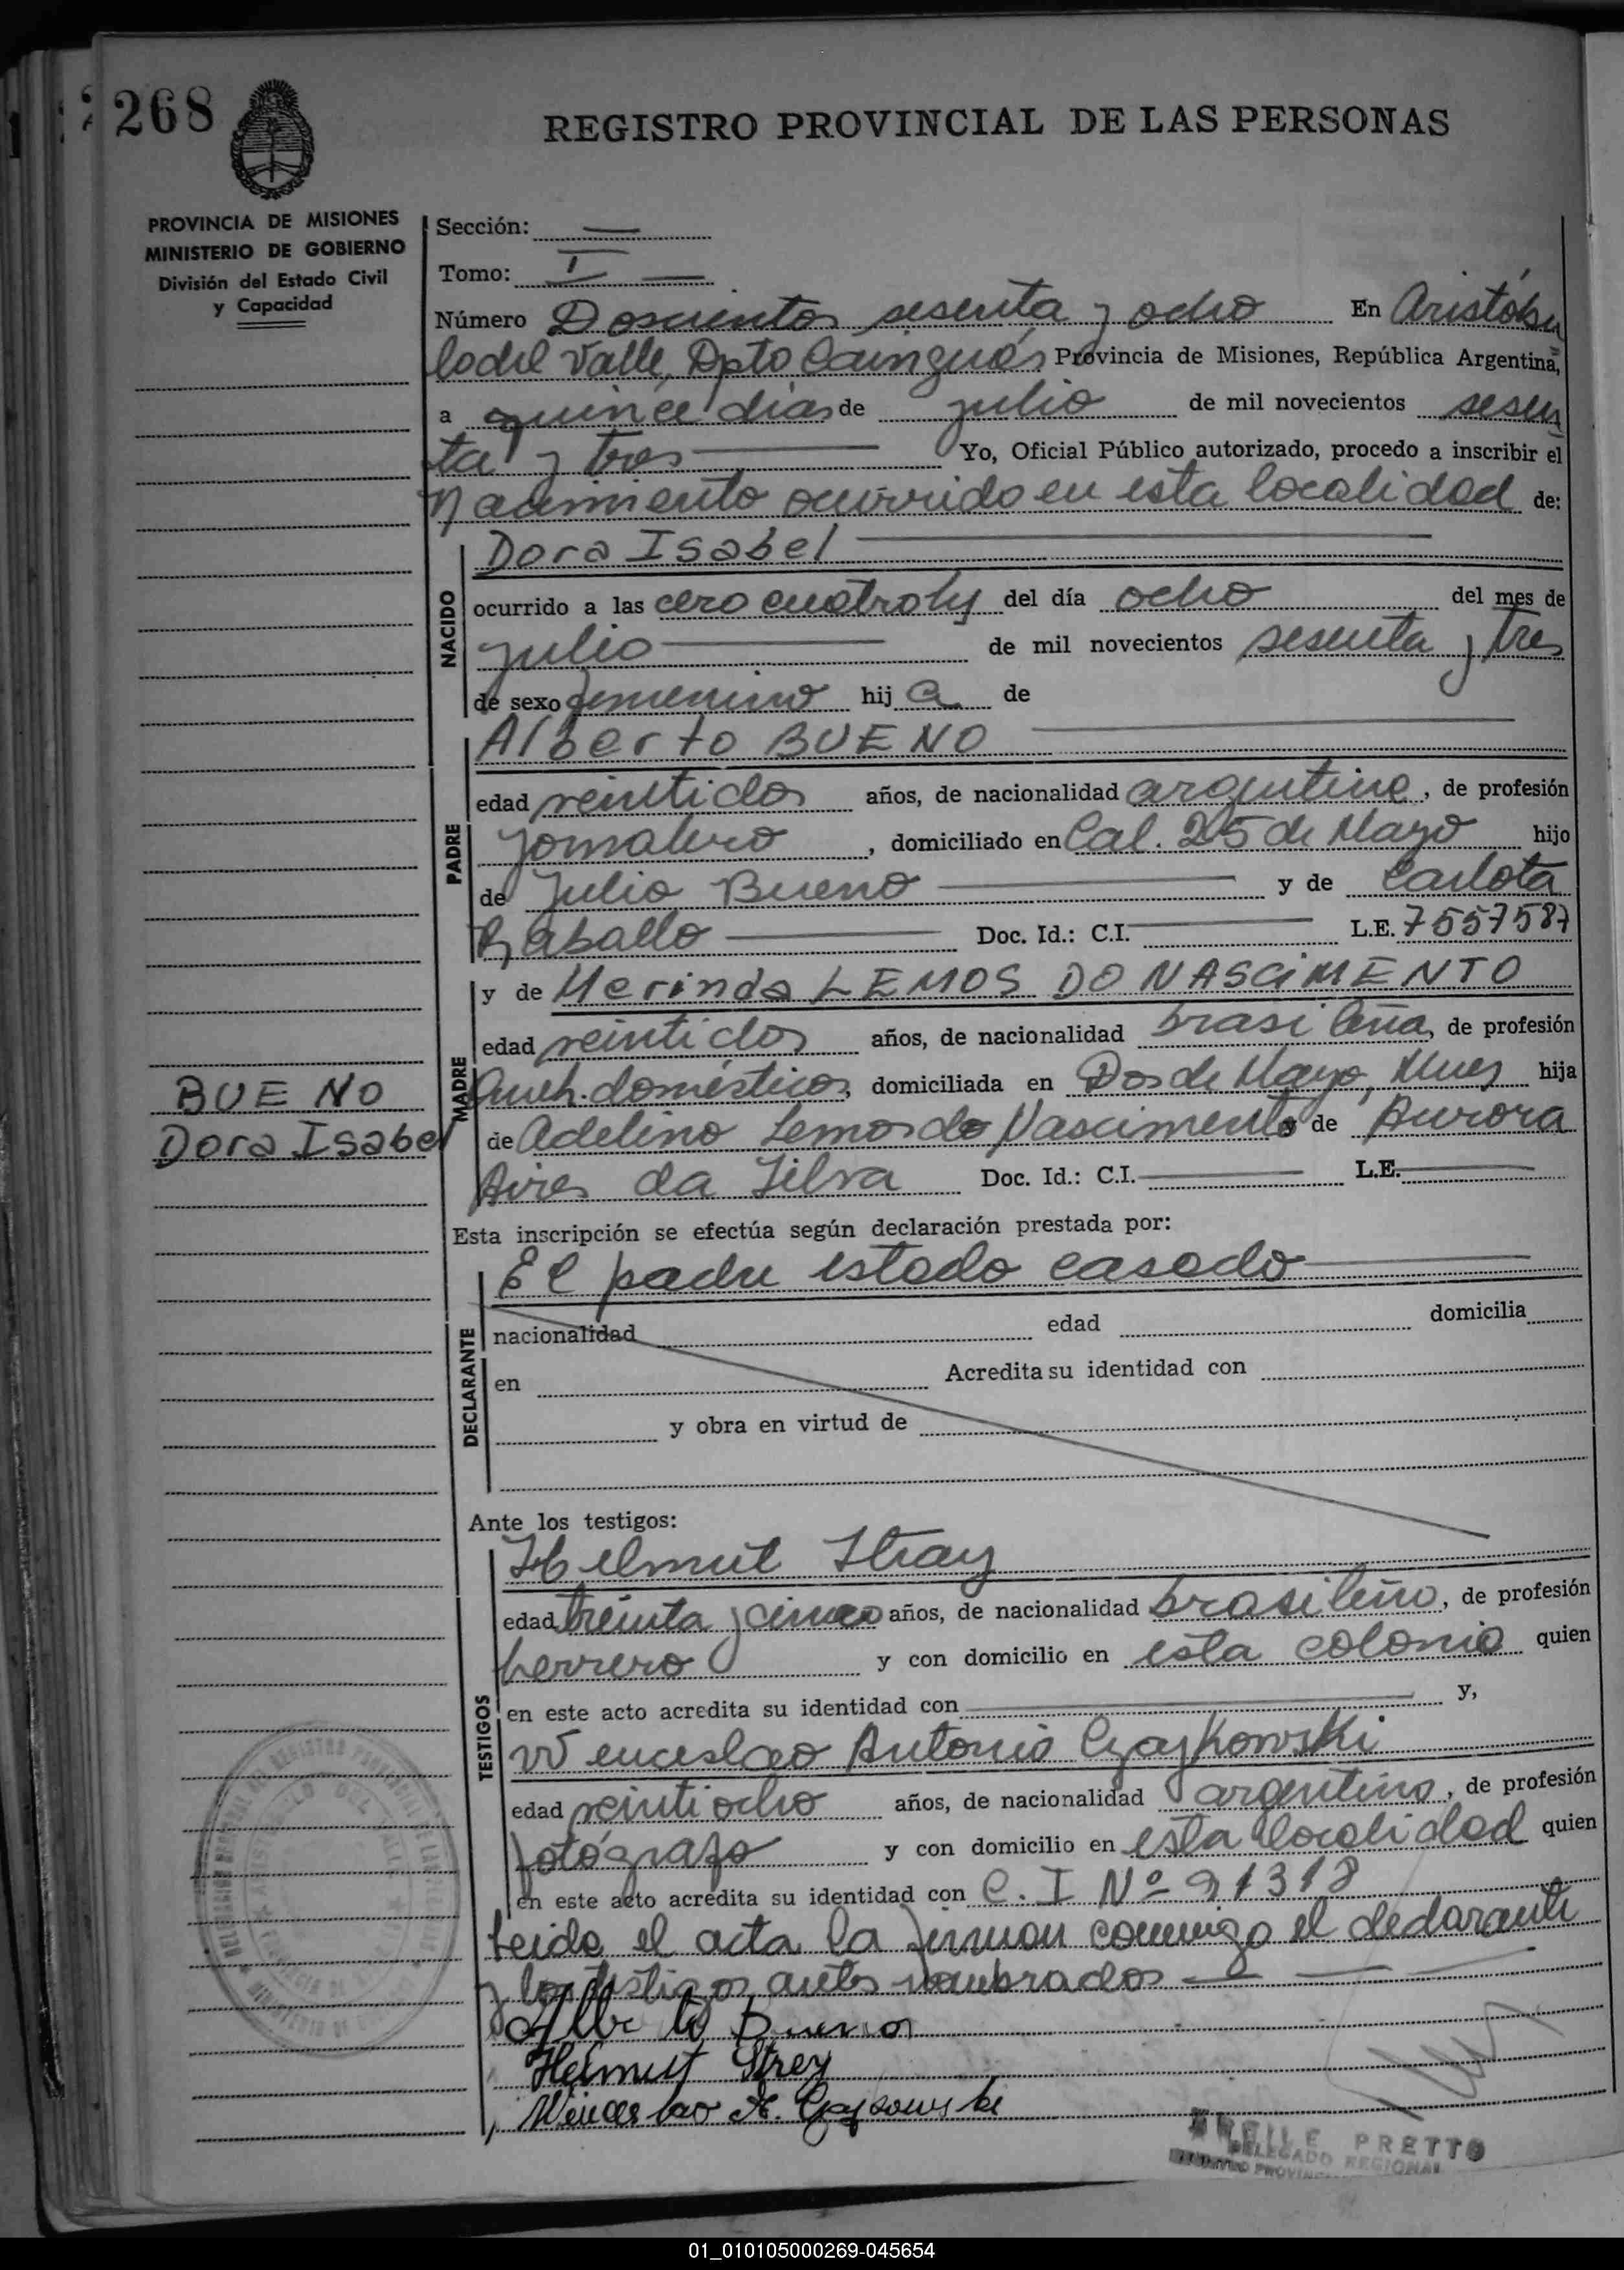 268
REGISTRO PROVINCIAL DE LAS PERSONAS
PROVINCIA DE MISIONES
MINISTERIO DE GOBIERNO
División del Estado Civil
y Capacidad
Sección: —
Tomo: I —
Número Doscientos sesenta y ocho En Aristóbu
lo del Valle, Dpto Cainguás Provincia de Misiones, República Argentina,
a quince dias de julio de mil novecientos sesen
ta y tres Yo, Oficial Público autorizado, procedo a inscribir el
nacimiento ocurrido en esta localidad de:
NACIDO
Dora Isabel
ocurrido a las cero cuatro hs del día ocho del mes de
julio de mil novecientos sesenta y tres
de sexo femenino hij a de
PADRE
Alberto BUENO
edad veintidos años, de nacionalidad argentina, de profesión
jornalero, domiciliado en Cal. 25 de Mayo hijo
de Julio Bueno y de Carlota
Raballo Doc. Id.: C.I. L.E. 7557587
MADRE
y de Merinda LEMOS DO NASCIMENTO
edad veintidos años, de nacionalidad brasileña, de profesión
domésticos, domiciliada en Dos de Mayo, Mnes hija
de Adelino Lemos do Nascimento y de Aurora
Aires da Silva Doc. Id.: C.I. L.E.
BUENO
Dora Isabel
Esta inscripción se efectúa según declaración prestada por:
DECLARANTE
El padre estado casado
nacionalidad edad domicilia
en Acredita su identidad con
y obra en virtud de
Ante los testigos:
TESTIGOS
Helmut Stray
edad treinta y cinco años, de nacionalidad brasileño, de profesión
herrero y con domicilio en esta colonia quien
en este acto acredita su identidad con y,
Wenceslao Antonio Czajkowski
edad veintiocho años, de nacionalidad argentino, de profesión
fotógrafo y con domicilio en esta localidad quien
en este acto acredita su identidad con C. I Nº 91318
Leida el acta la firman conmigo el declarante
y los testigos antes nombrados
Alberto Bueno
Helmut Strey
Wenceslao A. Czajkowski
PRETTO
DELEGADO REGIONAL
01_010105000269-045654